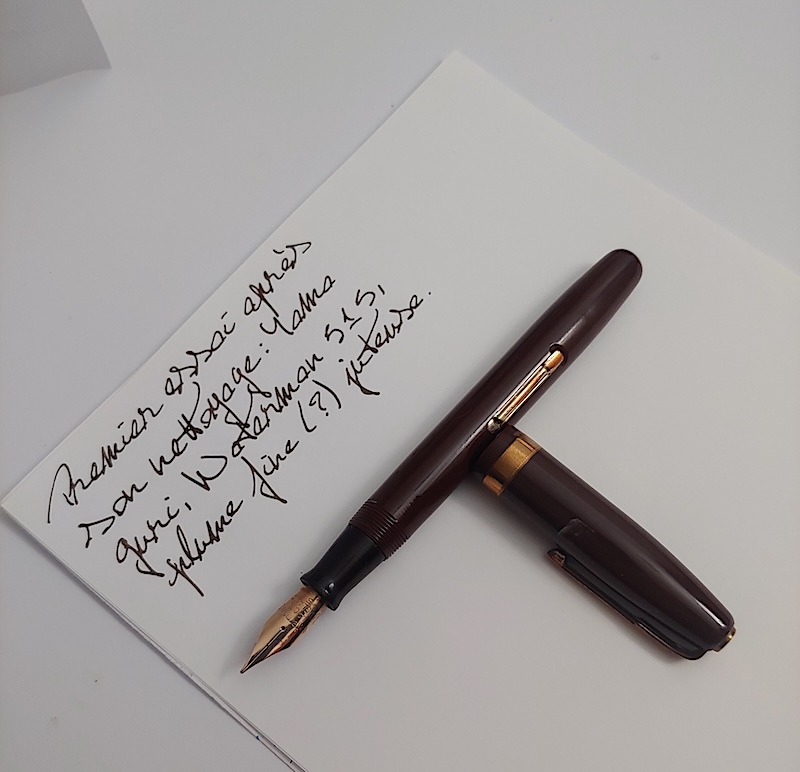 Premier essai après
son nettoyage: Yama
guri, Waterman 515,
plume fine (?) intense.